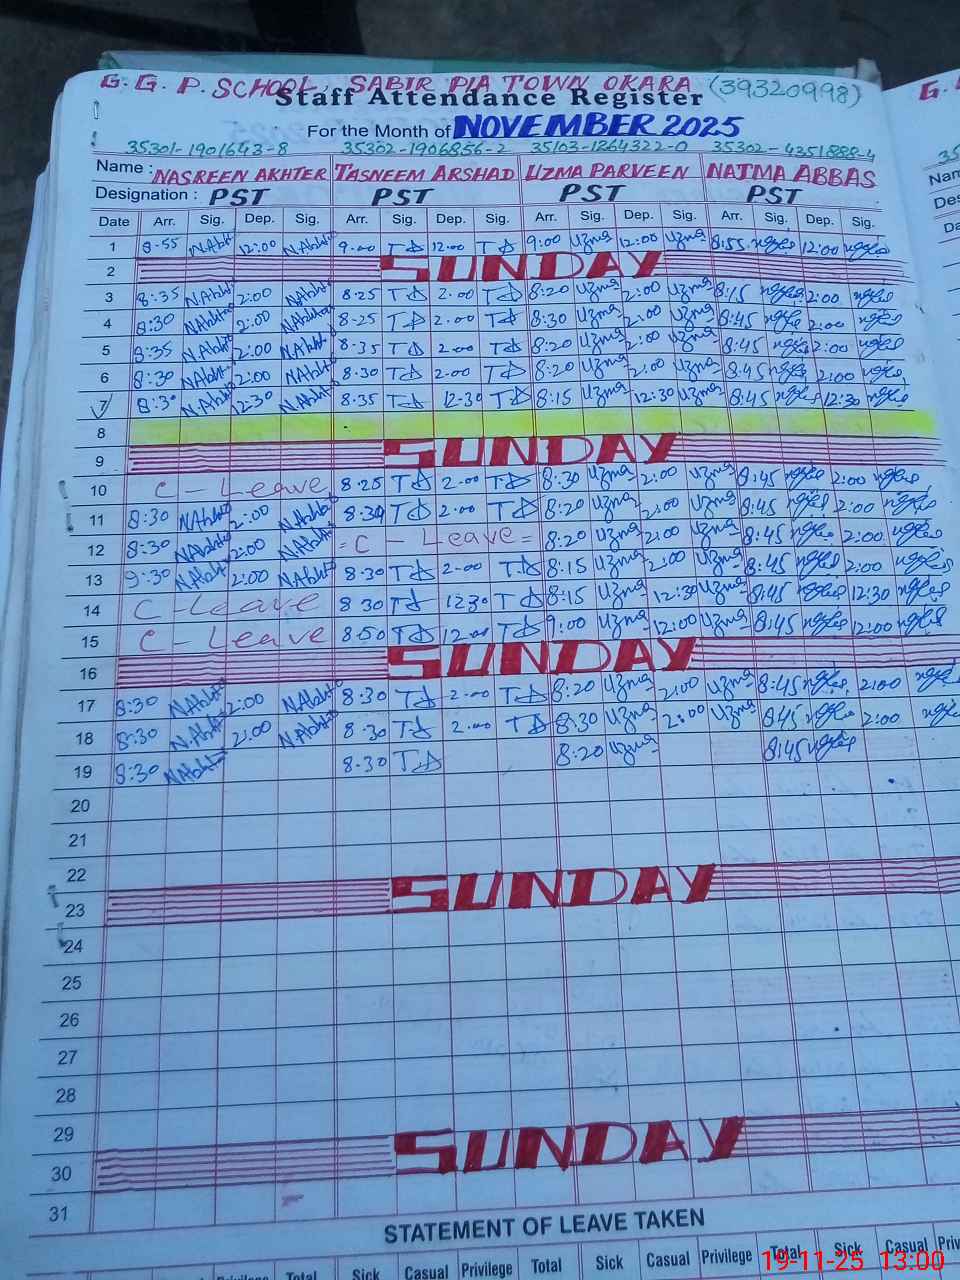 G.G.P. SCHOOL, SABIR PIA TOWN OKARA (39320998)
Staff Attendance Register
For the Month of NOVEMBER 2025
35301-1901643-8 35302-1906856-2 35103-1264322-0 35302-4351888-4
Name : NASREEN AKHTER TASNEEM ARSHAD UZMA PARVEEN NAJMA ABBAS
Designation : PST PST PST PST
Date Arr. Sig. Dep. Sig. Arr. Sig. Dep. Sig. Arr. Sig. Dep. Sig. Arr. Sig. Dep. Sig.
1 8:55 12:00 9.00 12.00 9:00 Uzma 12:00 Uzma 8:55 12:00
2 SUNDAY
3 8:35 2:00 8.25 2.00 8:20 Uzma 2:00 Uzma 8:15 2:00
4 8:30 2:00 8-25 2.00 8:30 Uzma 2:00 Uzma 8:45 2:00
5 8:35 2:00 8.35 2.00 8:20 Uzma 2:00 Uzma 8:45 2:00
6 8:30 2:00 8.30 2.00 8:20 Uzma 2:00 Uzma 8:45 2:00
7 8:30 12:30 8.35 12-30 8:15 Uzma 12:30 Uzma 8:45 12:30
8
9 SUNDAY
10 C - Leave 8.25 2.00 8:30 Uzma 2:00 Uzma 8:45 2:00
11 8:30 2:00 2.00 8:20 Uzma 2:00 Uzma 8:45 2:00
12 8:30 2:00 = C - Leave = 8:20 Uzma 2:00 Uzma 8:45 2:00
13 9:30 2:00 8.30 2-00 8:15 Uzma 2:00 Uzma 8:45 2:00
14 C - Leave 8 30 1230 8:15 Uzma 12:30 Uzma 8:45 12:30
15 C - Leave 8.50 12.00 9:00 Uzma 12:00 Uzma 8:45 12:00
16 SUNDAY
17 8:30 2:00 8.30 2.00 8:20 Uzma 2:00 Uzma 8:45 2:00
18 8:30 2:00 8.30 2.00 8:30 Uzma 2:00 Uzma 8:45 2:00
19 8:30 8-30 8:20 Uzma 8:45
20
21
22
23 SUNDAY
24
25
26
27
28
29
30 SUNDAY
31
STATEMENT OF LEAVE TAKEN
Privilege Total Sick Casual Privilege Total Sick Casual Privilege Total Sick Casual
19-11-25 13:00